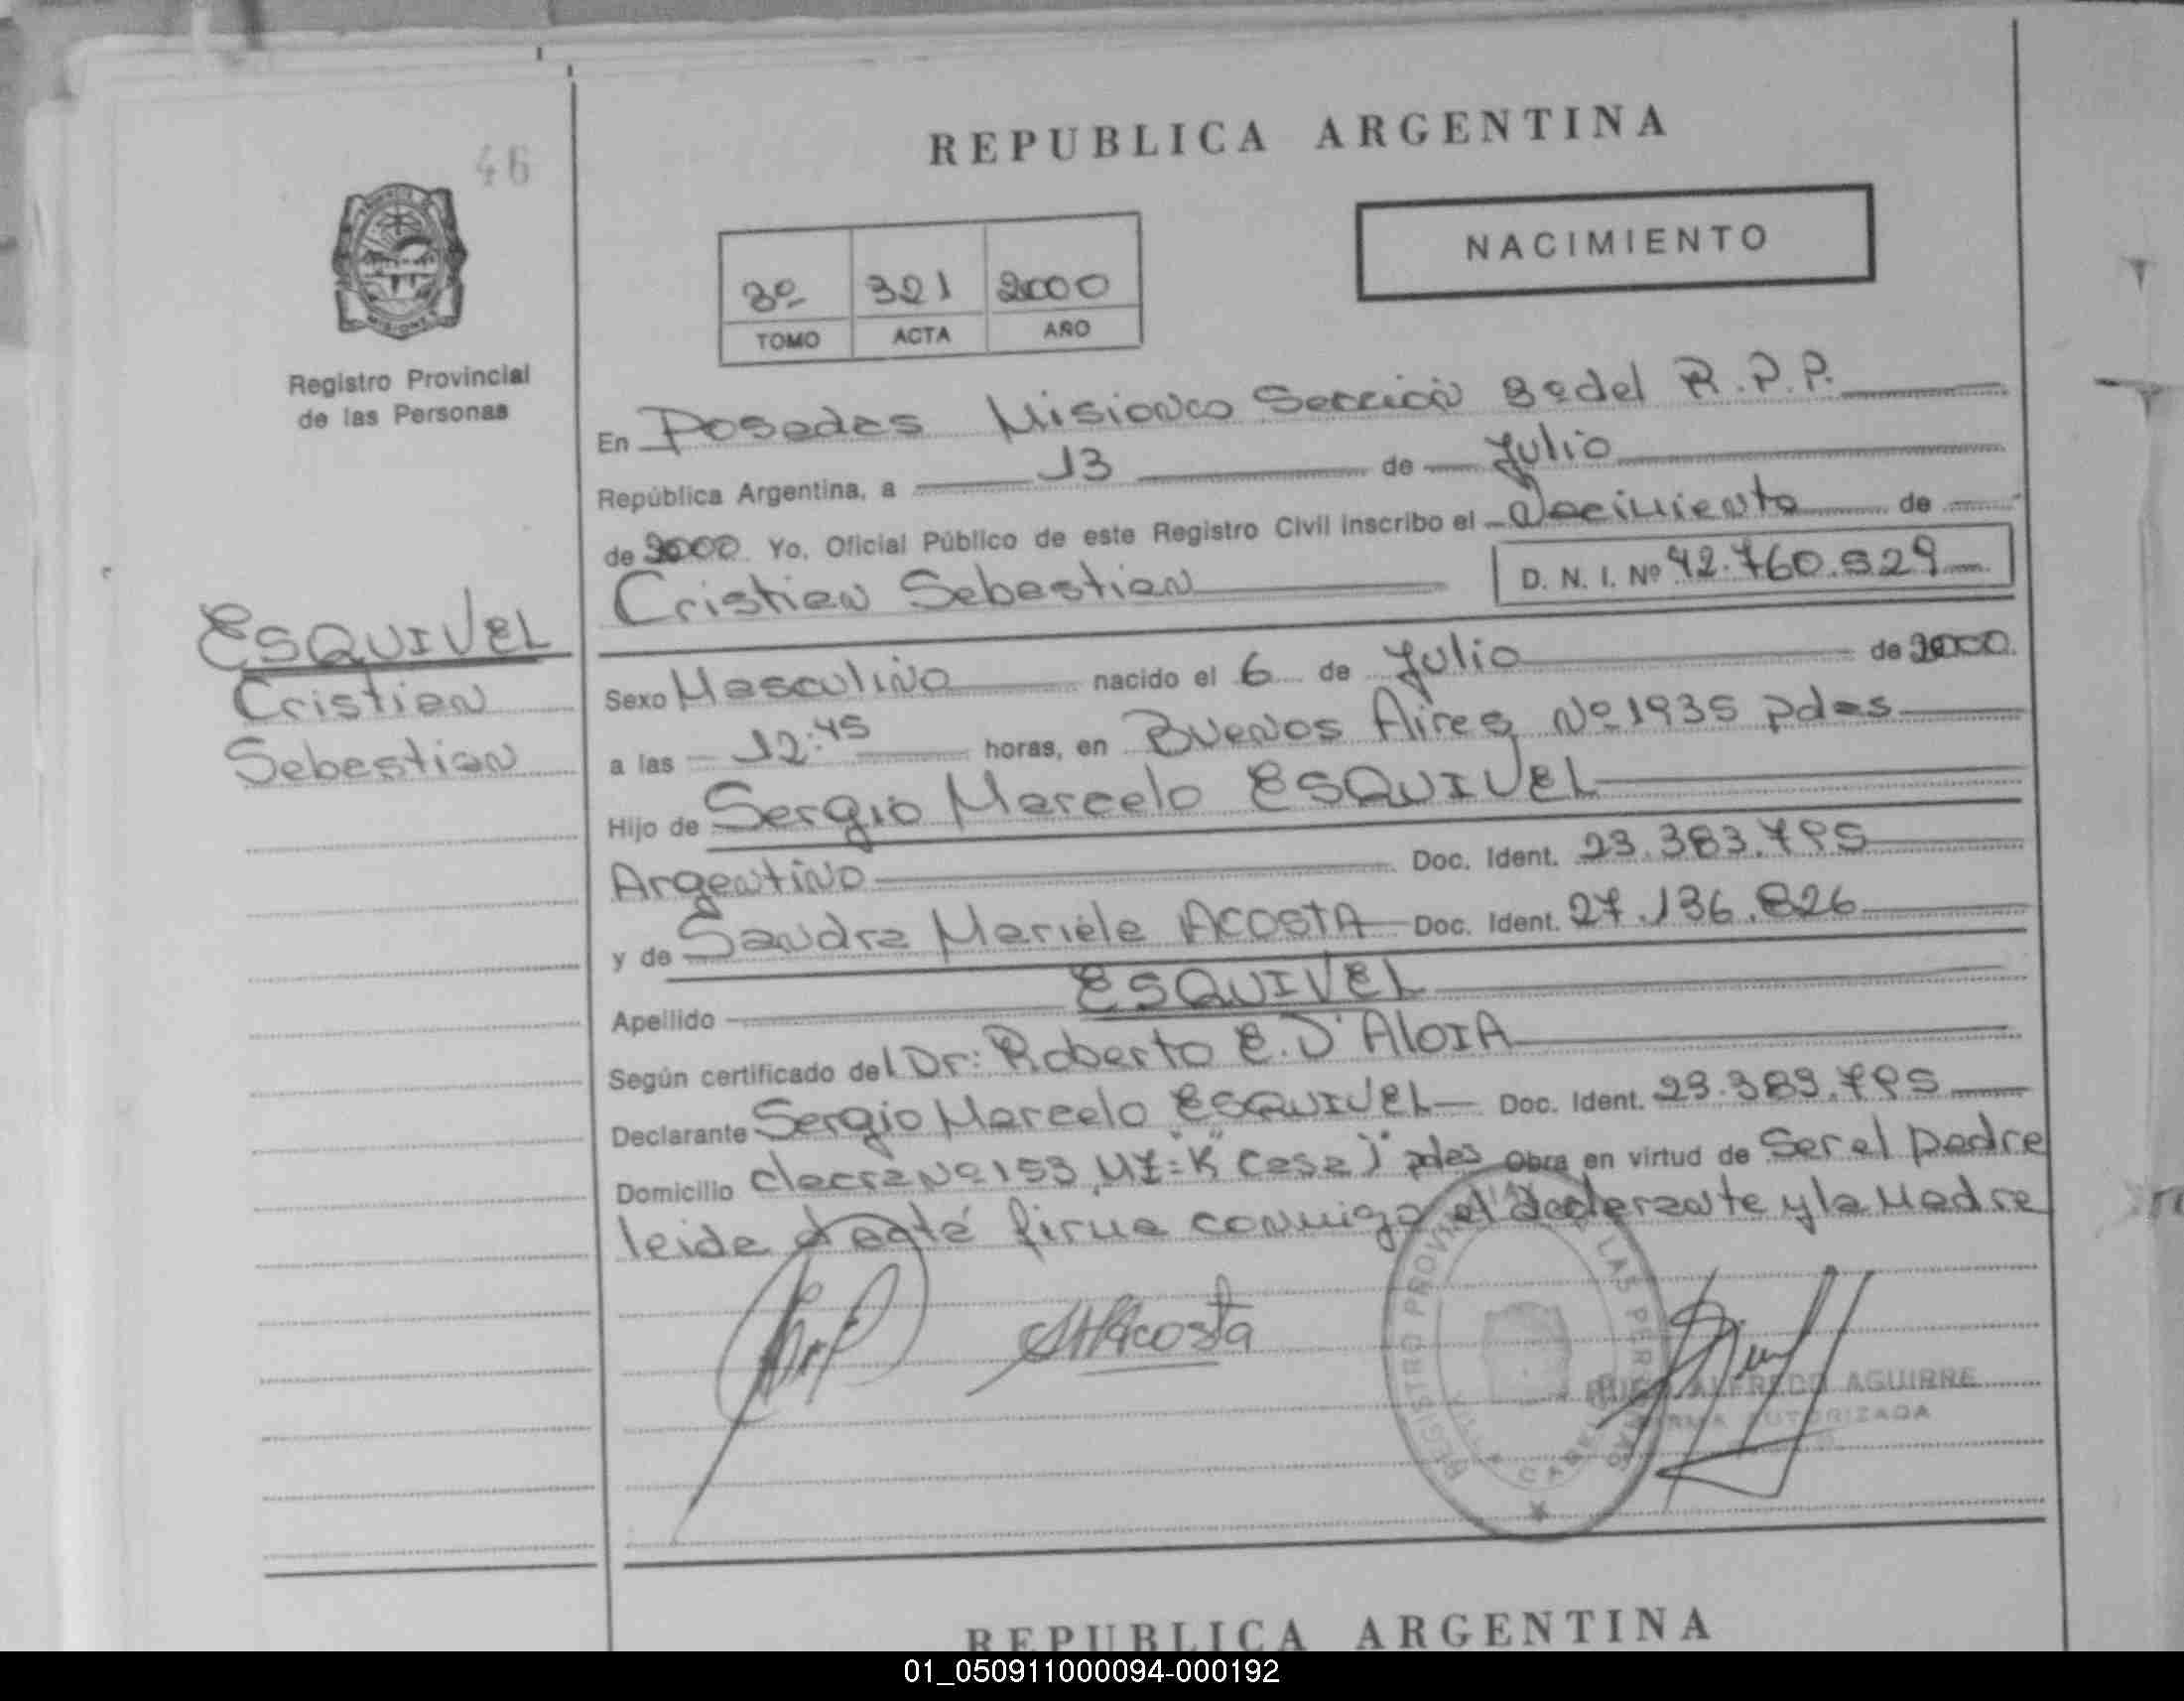 46
REPUBLICA ARGENTINA
NACIMIENTO
3º 321 2000
TOMO ACTA AÑO
Registro Provincial
de las Personas
En Posadas Misiones Sección 3º del R.P.P.
República Argentina, a 13 de Julio
de 2000 Yo, Oficial Público de este Registro Civil inscribo el Nacimiento de
Cristian Sebastian D. N. I. Nº 42.760.529
ESQUIVEL
Cristian
Sebastian
Sexo Masculino nacido el 6 de Julio de 2000.
a las 12:45 horas, en Buenos Aires Nº 1935 pdas
Hijo de Sergio Marcelo ESQUIVEL
Argentino Doc. Ident. 23.383.795
y de Sandra Mariela ACOSTA Doc. Ident. 27.136.826
Apellido ESQUIVEL
Según certificado del Dr: Roberto E. D'AloIA
Declarante Sergio Marcelo ESQUIVEL Doc. Ident. 23.383.795
Domicilio chacra Nº 153, MZ= "K" Casa pdas Obra en virtud de Ser el padre
leida el acta firma conmigo el declarante y la Madre
Acosta
REGISTRO PROVINCIAL DE LAS PERSONAS
ALFREDO AGUIRRE
FIRMA AUTORIZADA
REPUBLICA ARGENTINA
01_050911000094-000192